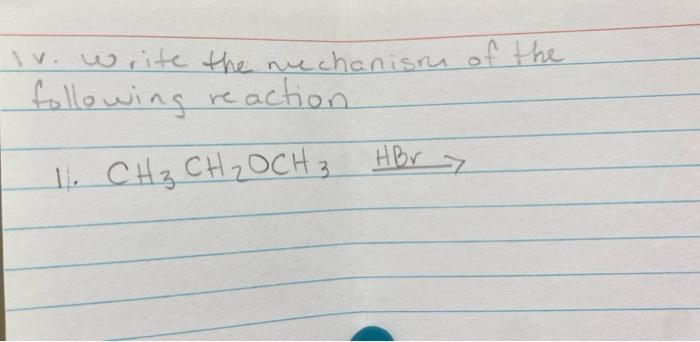 IV. Write the mechanism of the
following reaction
11. CH3CH2OCH3 HBr →